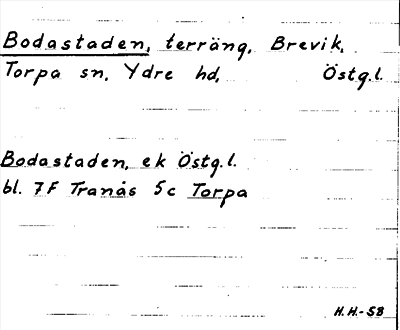 Bodastaden, terräng, Brevik,
Torpa sn, Ydre hd, Östg.l.
Bodastaden, ek Östg.l.
bl. 7F Tranås 5c Torpa
H.H.-58